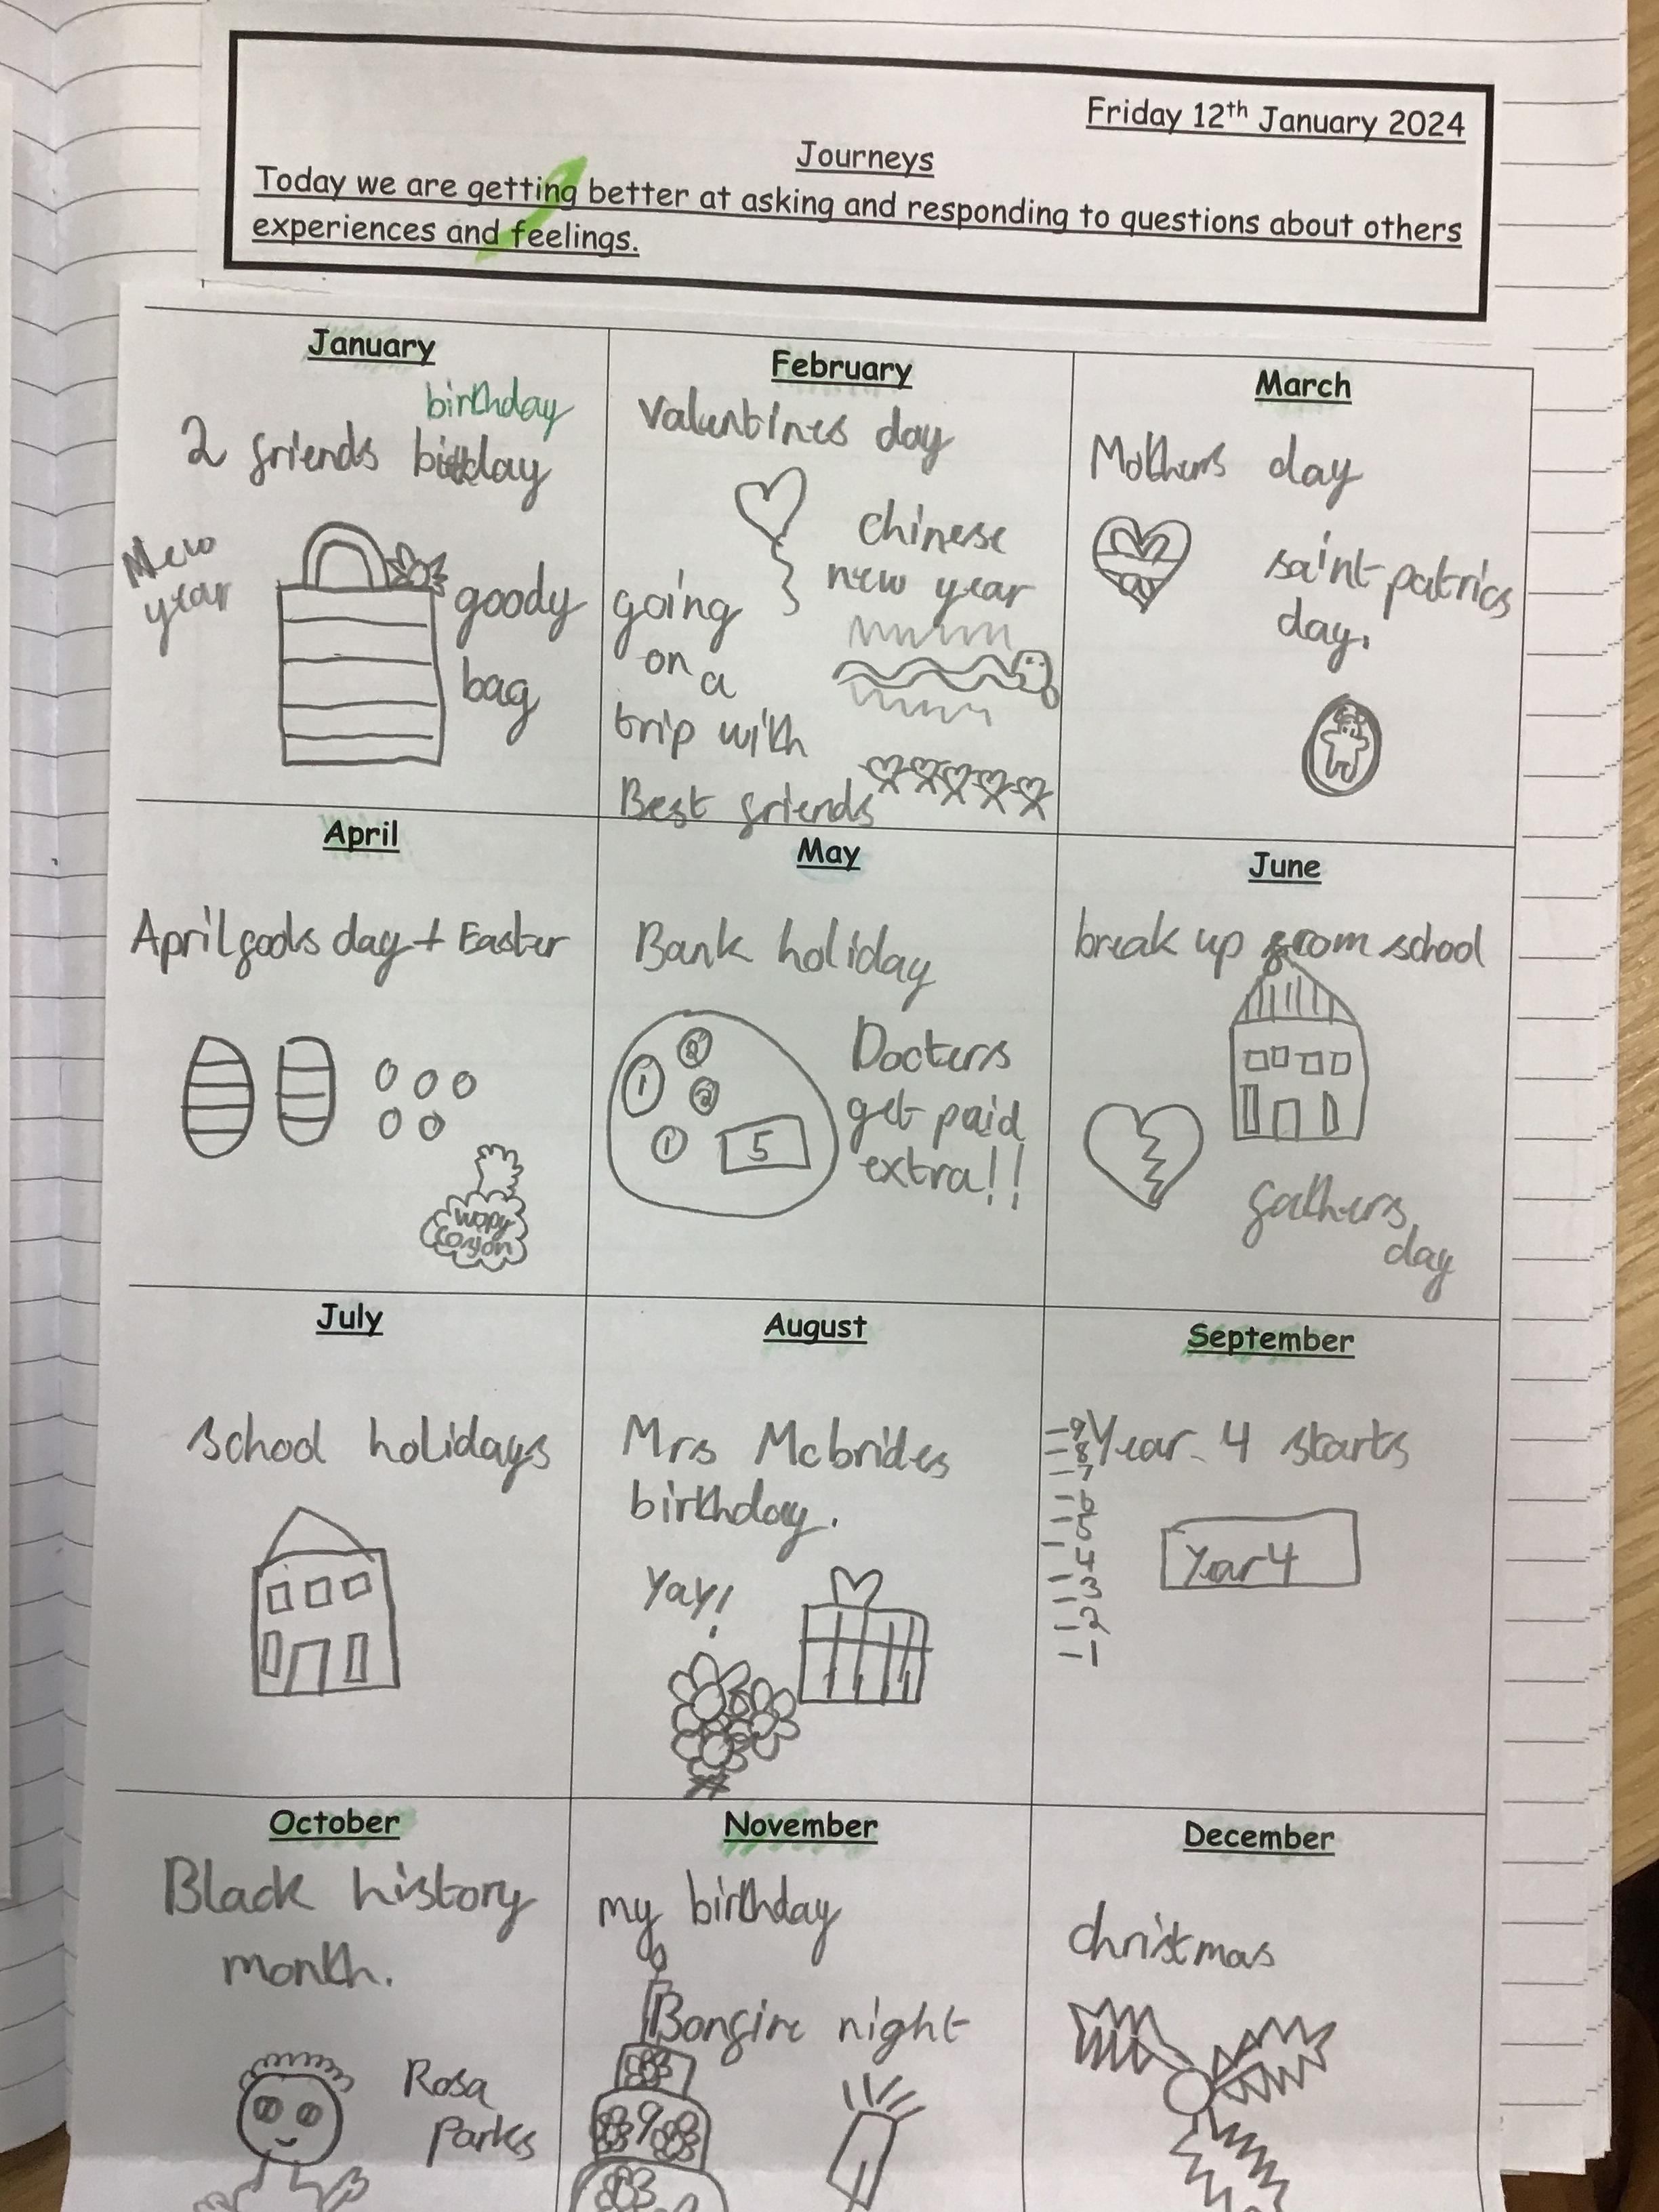 Friday 12th January 2024
Journeys
Today we are getting better at asking and responding to questions about others
experiences and feelings.
January
birthday
2 friends bithday
New
year
goody
bag
February
valentines day
chinese
new year
going
on a
trip with
Best friends
March
Mothers day
saint patrics
day.
April
April fools day + Easter
May
Bank holiday
1
2
2
1
5
Docters
get paid
extra!!
June
break up from school
fathers
day
July
school holidays
August
Mrs Mcbrides
birthday.
Yay!
September
Year 4 starts
-9
-8
-7
-6
-5
-4
-3
-2
-1
Year 4
October
Black history
month.
Rosa
Parks
November
my birthday
Bonfire night
9
December
christmas